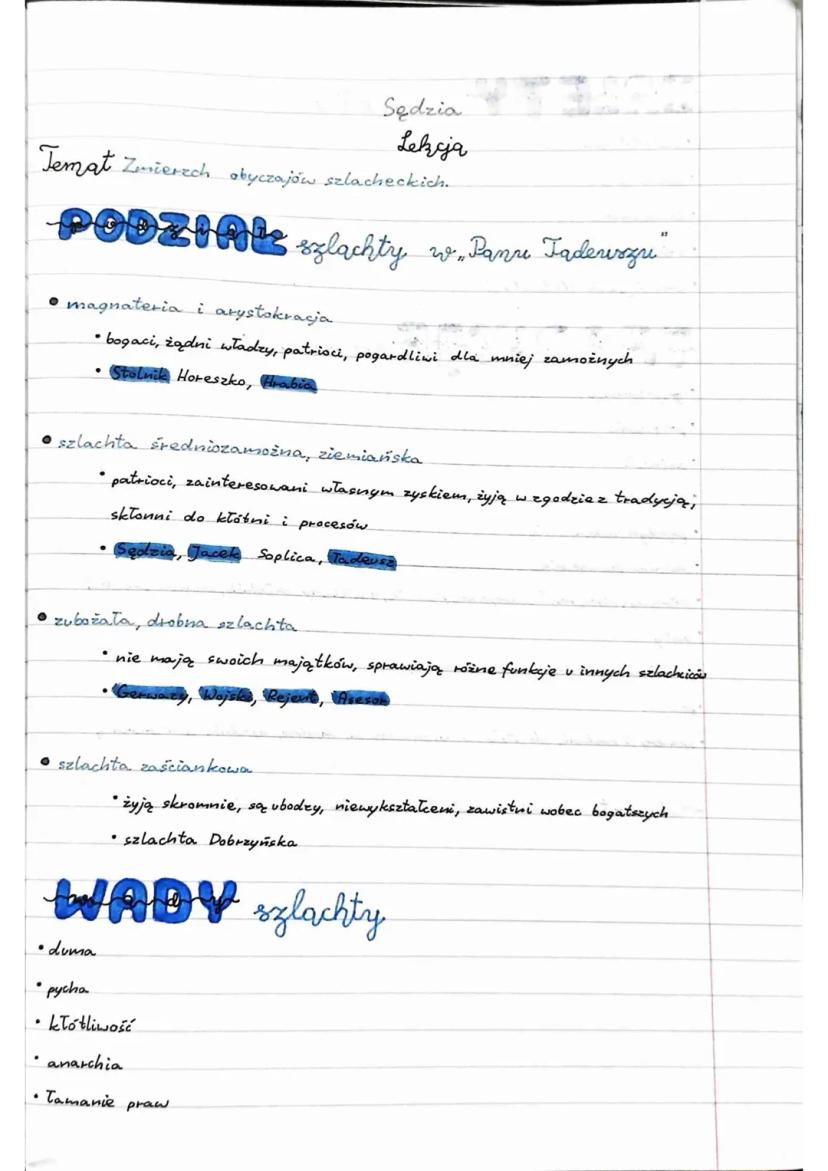 Sędzia
Lekcja
Temat Zmierzch obyczajów szlacheckich.
PODZIAŁ szlachty w „Panu Tadeuszu"
• magnateria i arystokracja
• bogaci, żądni władzy, patrioci, pogardliwi dla mniej zamożnych
• Stolnik Horeszko, Hrabia
• szlachta średniozamożna, ziemiańska
• patrioci, zainteresowani własnym zyskiem, żyją w zgodzie z tradycją,
skłonni do kłótni i procesów
• Sędzia, Jacek Soplica, Tadeusz
• zubożała, drobna szlachta
• nie mają swoich majątków, sprawiają różne funkcje u innych szlachciców
• Gerwazy, Wojski, Rejent, Asesor
• szlachta zaściankowa
• żyją skromnie, są ubodzy, niewykształceni, zawistni wobec bogatszych
• szlachta Dobrzyńska
WADY szlachty
• duma
• pycha
• kłótliwość
• anarchia
• łamanie praw